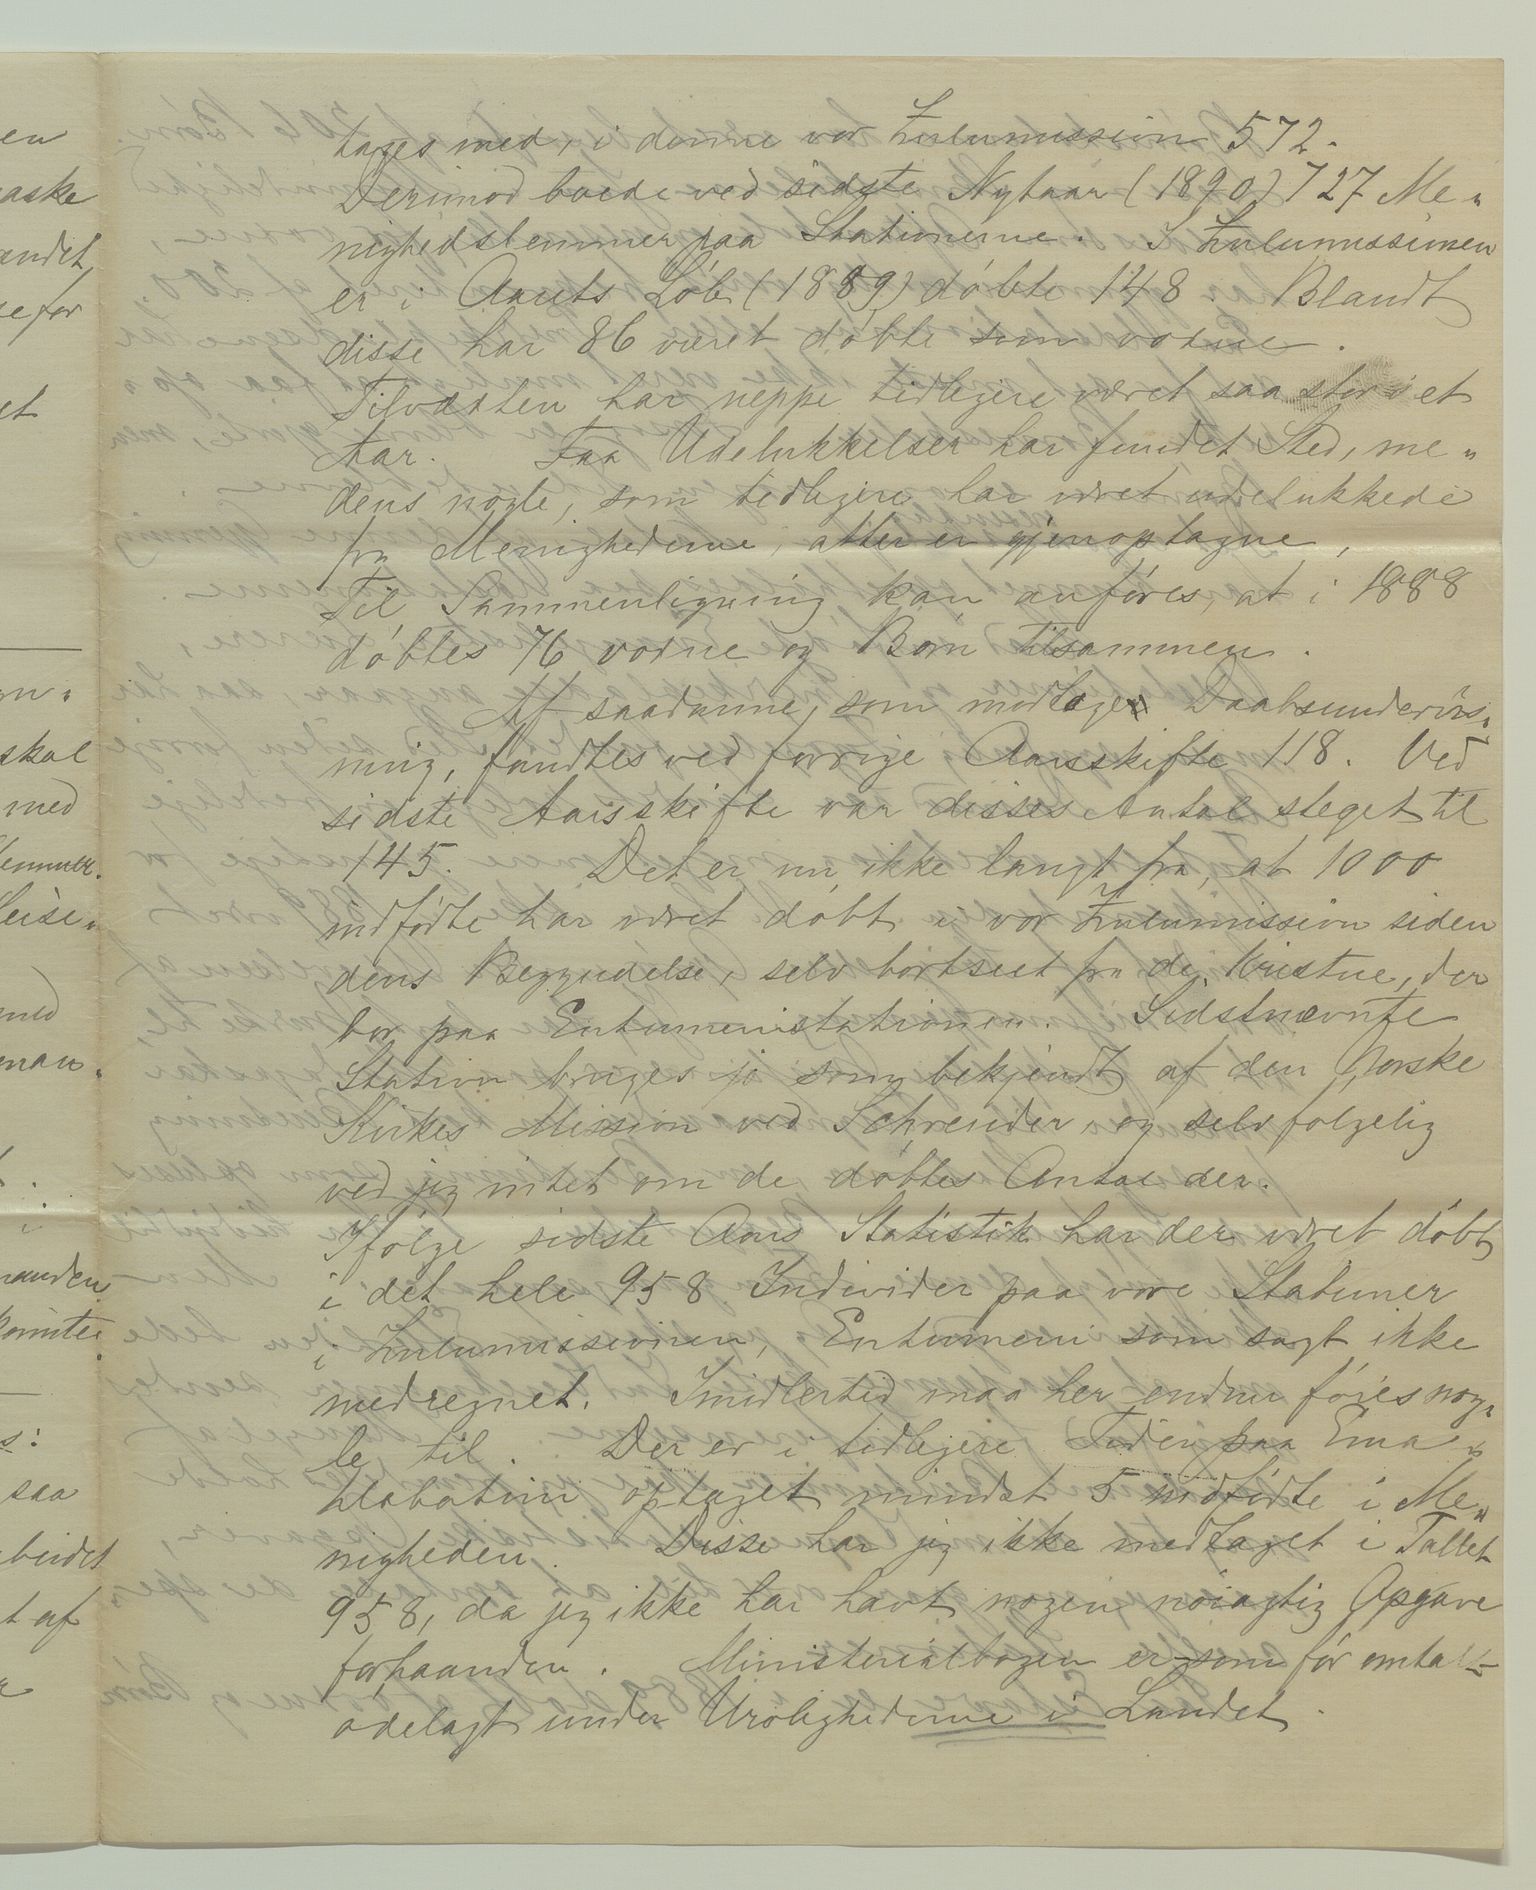 tages med, i denne vor Zulumission 572.
Derimod boede ved sidste Nytaar (1890) 727 Me„
nighedslemmer paa Stationerne. I Zulumissionen
er i Aarets Løb (1889) døbte 148. Blandt
disse har 86 været døbte som voxne.
Tilvæxten har neppe tidligere været saa stor i et
Aar. Faa Udelukkelser har fundet Sted, me„
dens nogle, som tidligere har været udelukkede
fra Menighederne, atter er gjenoptagne,
Til Sammenligning kan anføres, at i 1888
døbtes 76 voxne og Børn tilsammen.
Af saadanne, som modtager Daabsundervis„
ning, fandtes ved forrige Aarsskifte 118. Ved
sidste Aarsskifte var disses Antal steget til
145. Det er nu ikke langt fra, at 1000
indfødte har været døbt i vor Zulumission siden
dens Begyndelse, selv bortseet fra de Kristne, der
bor paa Entumenistationen. Sidstnævnte
Station bruges jo som bekjendt af den Norske
Kirkes Mission ved Schreuder, og selvfølgelig
ved jeg intet om de døbtes Antal der.
Ifølge sidste Aars Statistik har der været døbt
i det hele 958 Individer paa vore Stationer
i Zulumissionen, Entumeni som sagt ikke
medregnet. Imidlertid maa her endnu føies nog„
le til. Der er i tidligere Tider paa Ema„
hlabatini optaget mindst 5 indfødte i Me„
nigheden. Disse har jeg ikke medtaget i Tallet
958, da jeg ikke har havt nogen nøiagtig Opgave
forhaanden. Ministerialbogen er som før omtalt
ødelagt under Urolighederne i Landet.
en
maske
andet
se for
et
skal
med
lemmer.
med
i
anden
komite
s:
saa
beidet
t af